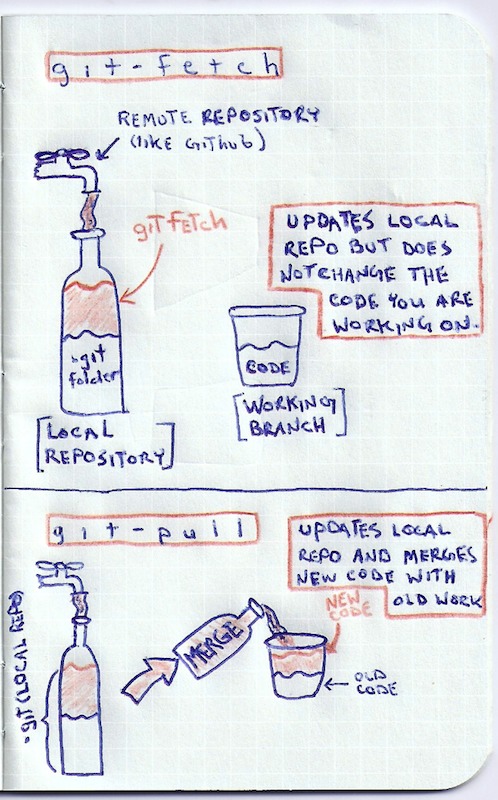 git-fetch
REMOTE REPOSITORY
(like GitHub)
git fetch
UPDATES LOCAL
REPO BUT DOES
NOT CHANGE THE
CODE YOU ARE
WORKING ON.
.git
folder
CODE
[LOCAL
REPOSITORY]
[WORKING
BRANCH]
git-pull
UPDATES LOCAL
REPO AND MERGES
NEW CODE WITH
OLD WORK
NEW
CODE
MERGE
OLD
CODE
.git (LOCAL REPO)